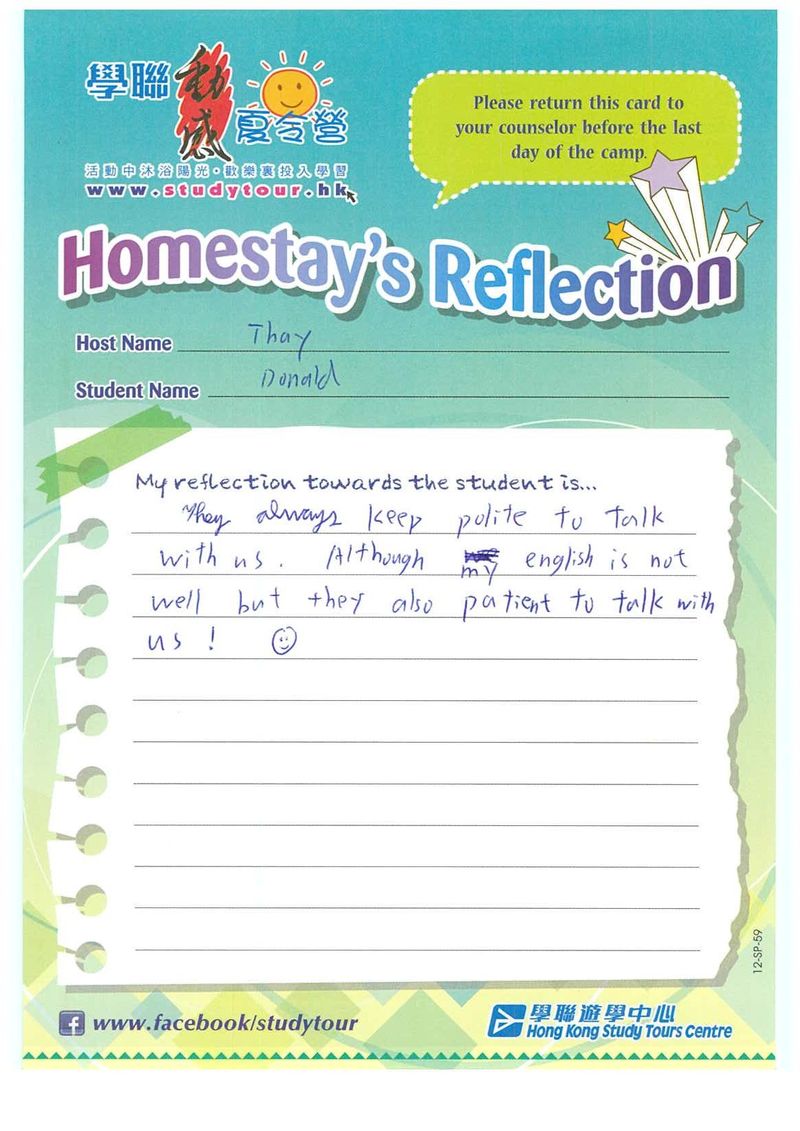 學聯動感夏令營
活動中沐浴陽光・歡樂裏投入學習
www.studytour.hk
Please return this card to
your counselor before the last
day of the camp.
Homestay's Reflection
Host Name Thay
Student Name Donald
My reflection towards the student is...
They always keep polite to talk
with us. Although my english is not
well but they also patient to talk with
us! ☺
12-SP-59
f www.facebook/studytour
學聯遊學中心
Hong Kong Study Tours Centre